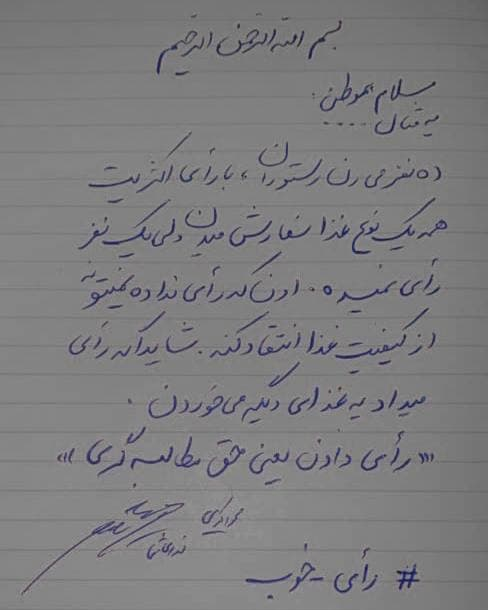 بسم الله الرحمن الرحیم
سلام هموطن.
یه مثال ....
ده نفر می رن رستوران، با رأی اکثریت
همه یک نوع غذا سفارش میدن ولی یک نفر
رأی نمیده. اون که رأی نداده نمیتونه
از کیفیت غذا انتقاد کنه. شاید اگه رأی
میداد یه غذای دیگه می خوردن.
«رأی دادن یعنی حق مطالبه گری»
# رأی - خوب